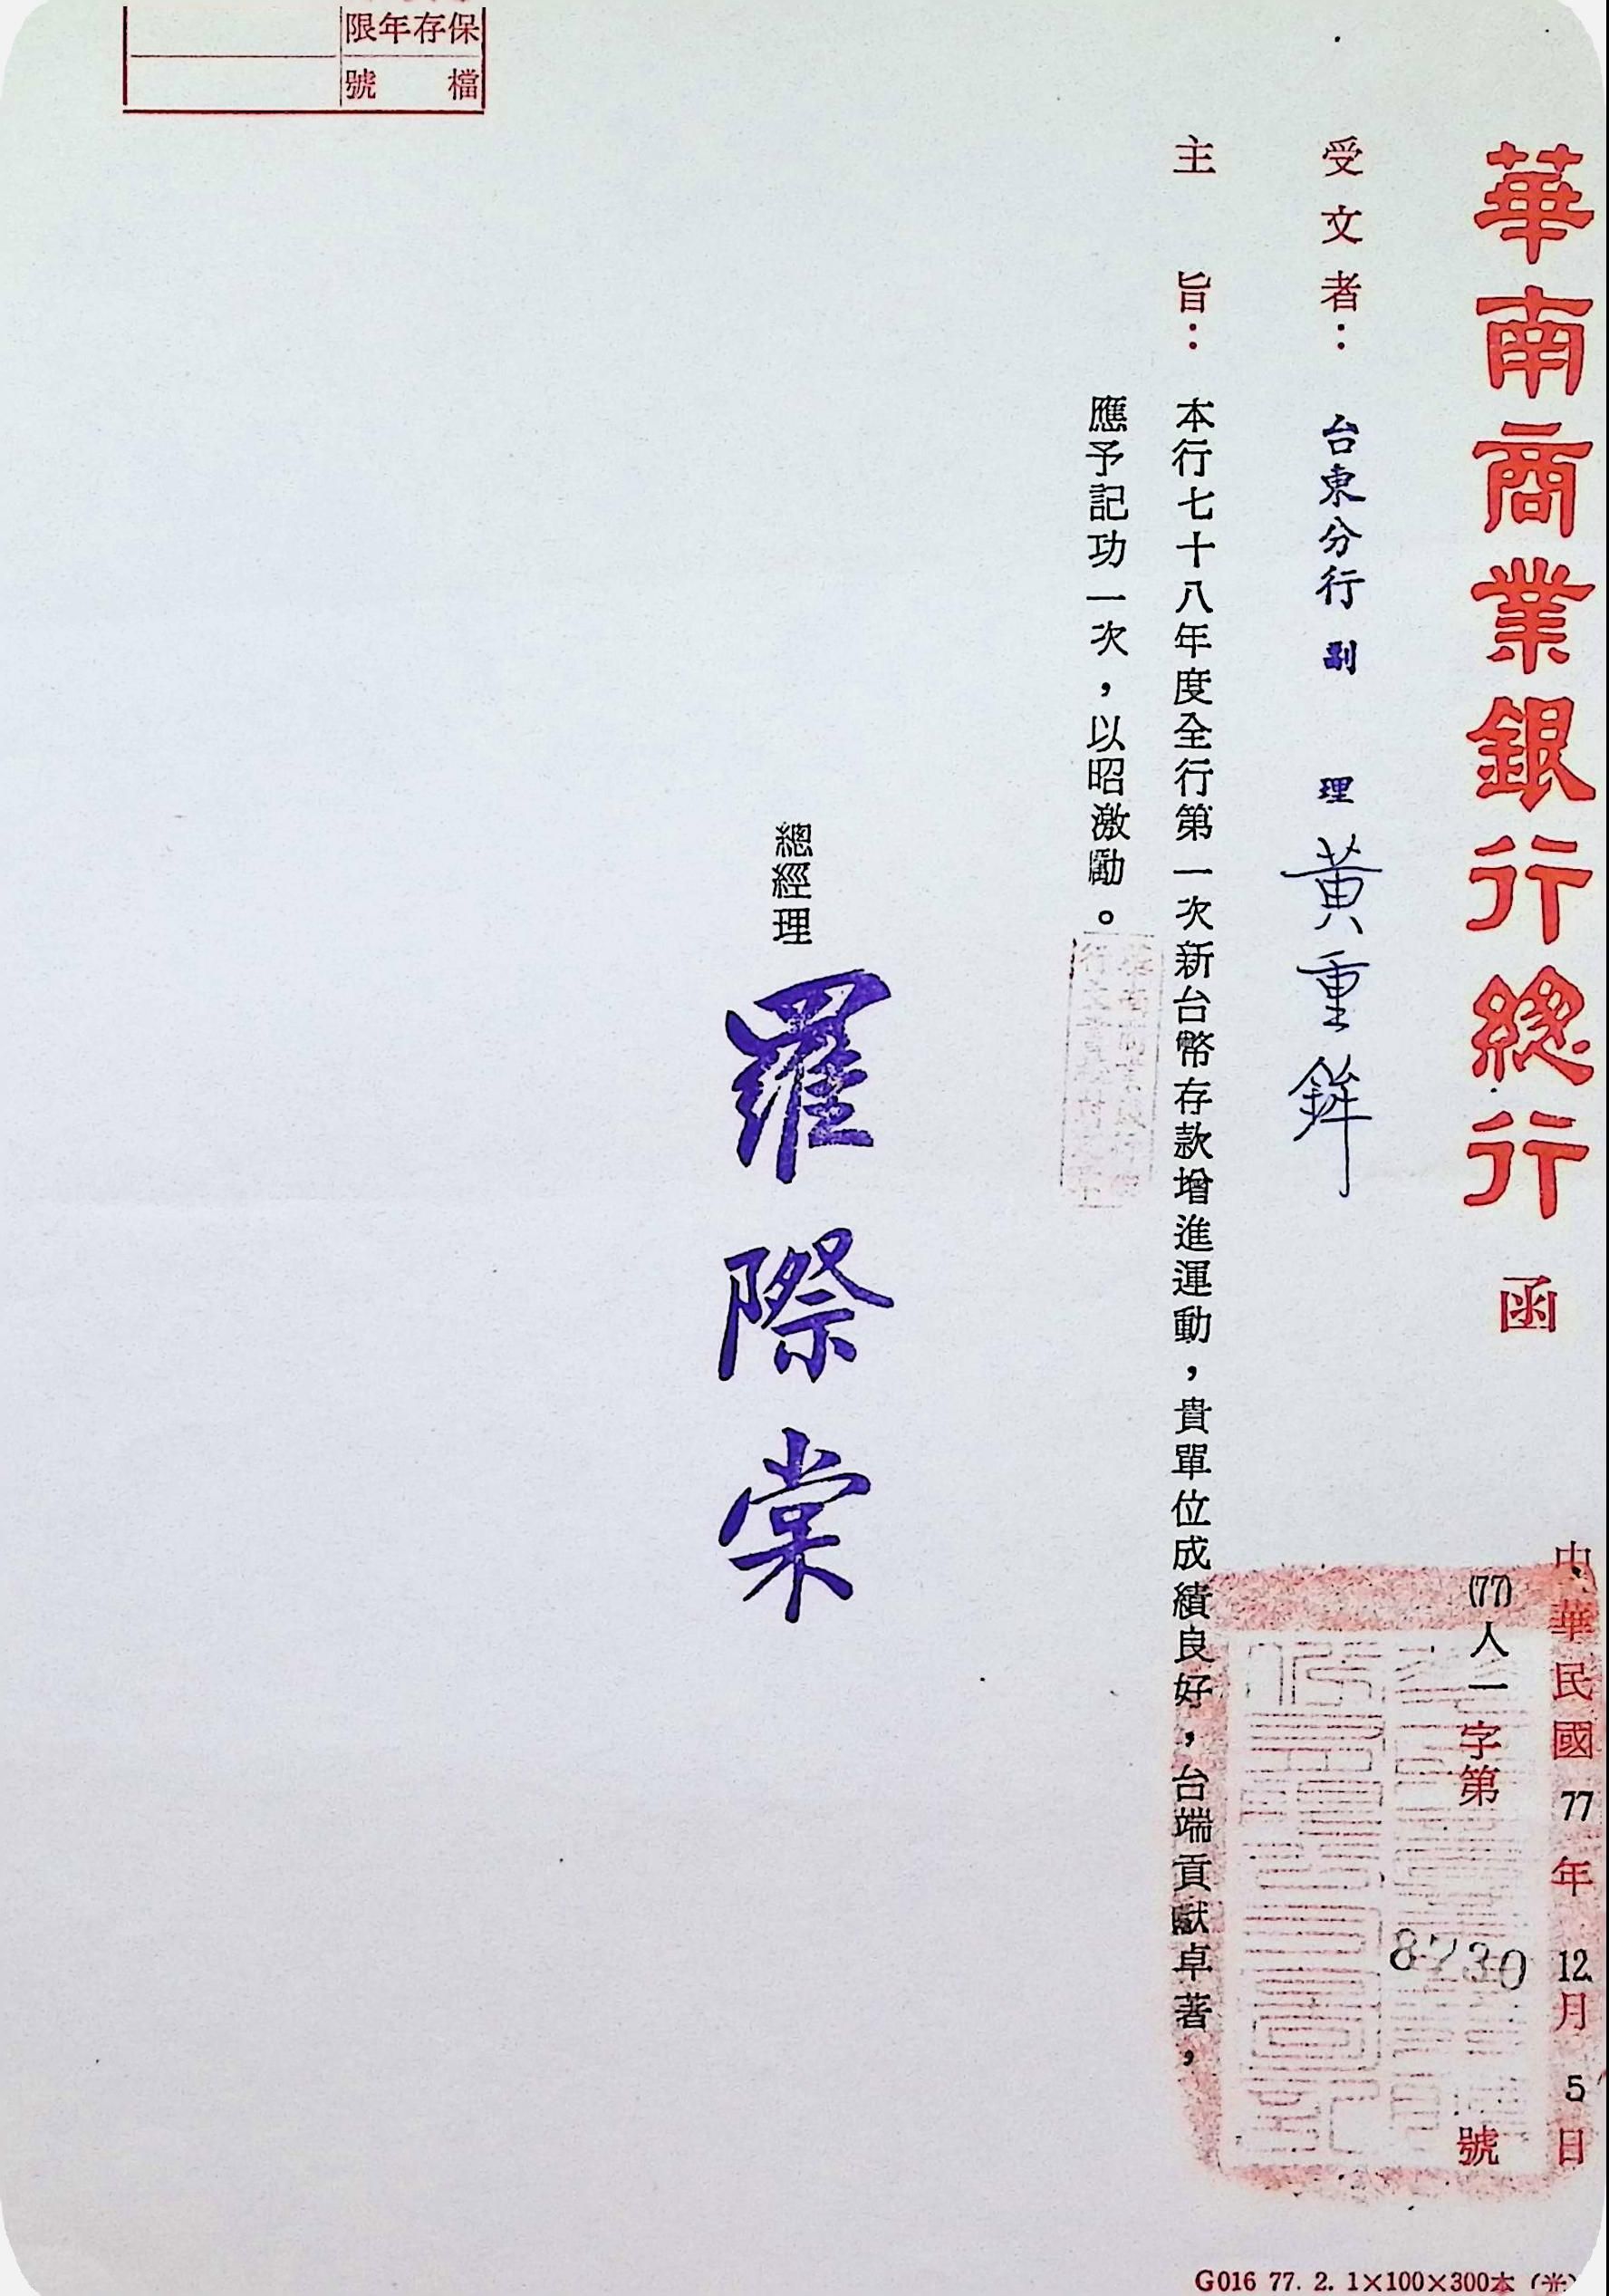 華南商業銀行總行 函
中華民國77年12月5日
(77)人一字第8730號
受文者：台東分行 副 理 黃重鉾
主 旨：本行七十八年度全行第一次新台幣存款增進運動，貴單位成績良好，台端貢獻卓著，
應予記功一次，以昭激勵。
總經理 羅際棠
保存年限
檔 號
G016 77. 2. 1×100×300本